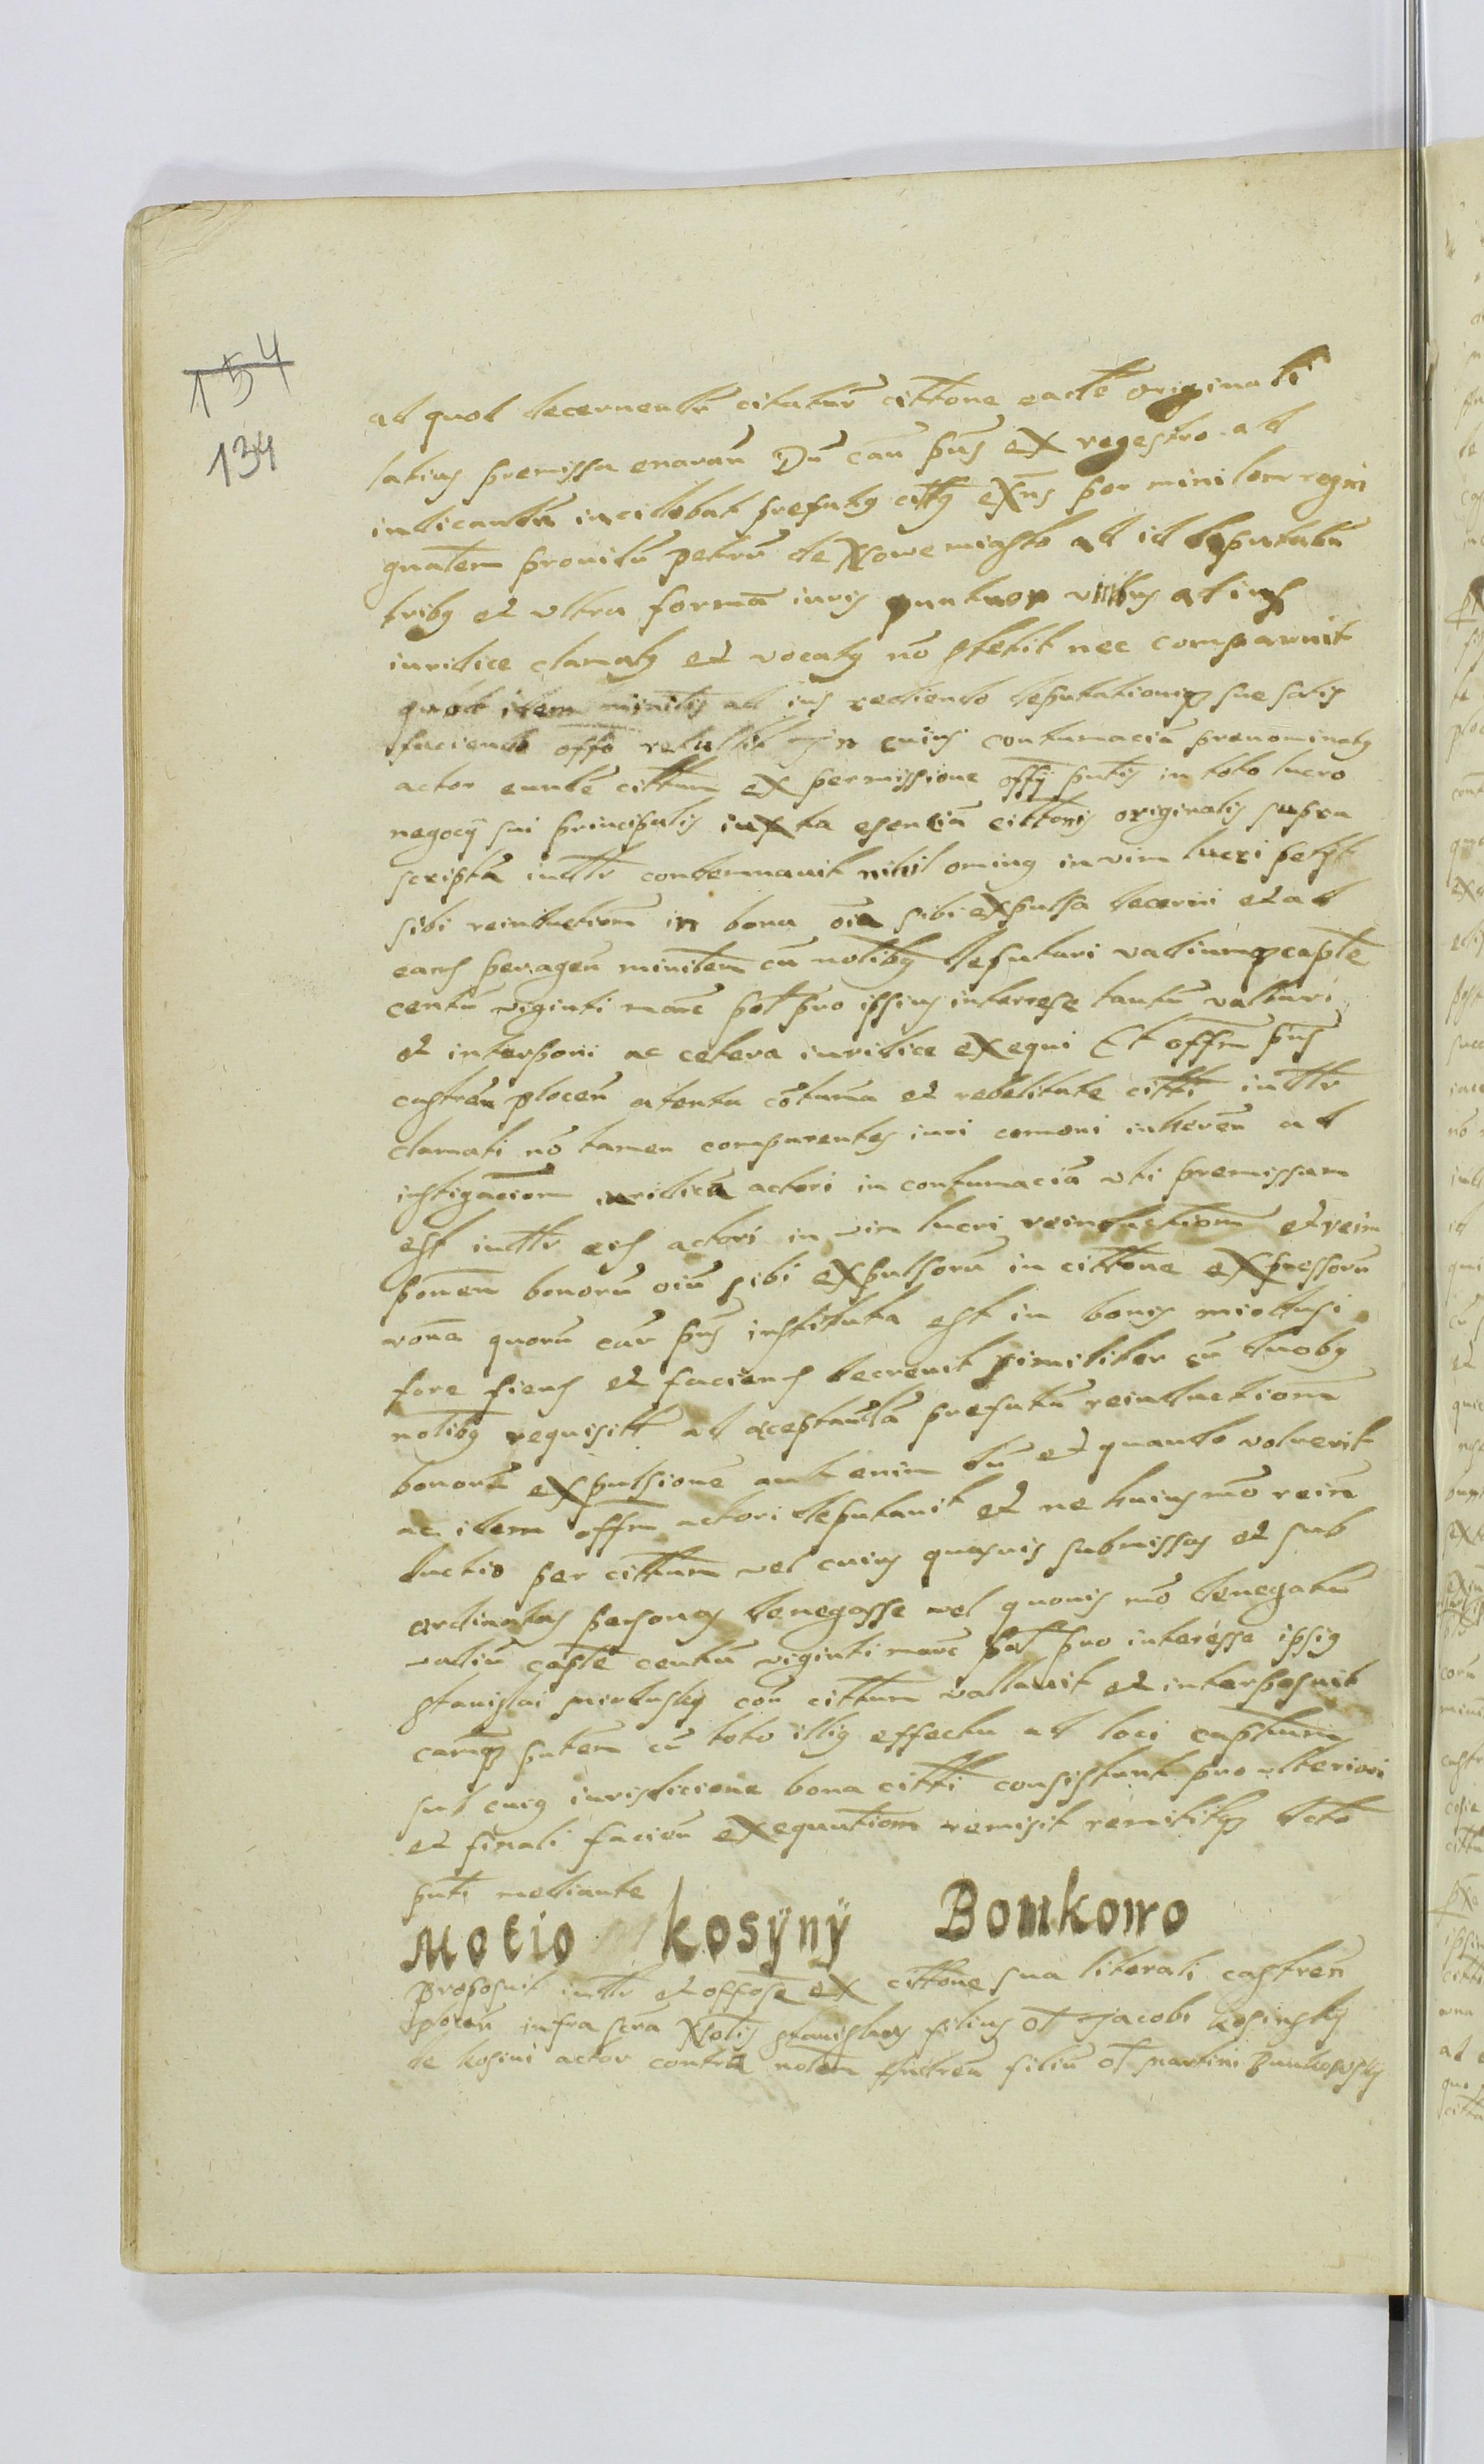 154
134
ad quod decernendū citatur cittone eadē originali
latius premissa enarran Dū cau pn̄s ex regestro ad
iudicandū incidebat prefatus citt9 exn̄s per minilem regni
gnalem providū petrū de Nowemiasto ad id deputatū
trib9 et ultra formā iuris quatuor vicibus ad ius
iuridice clamat9 et vocat9 nō stetit nec comparuit
quod idem minilis ad ius rediendo deputationiq3 sue satis
faciendo offo retulit In cuius contumaciā prenominat9
actor eundē cittum ex permissione offÿ pntis in toto lucro
negocÿ sui principalis iuxta esentiā cittonis originalis supra
scripta iudtr condemnavit nihil omin9 in vim lucri petyt
sibi reinductiom in bona oīa sibi expulsa decerni et ad
eans peragen minilem cū notib9 deputari vadiumq3 captē
centū viginti marc pol pro ipsius interrese tantū vallari
et interponi ac cetera iuridice exequi Et offm pn̄s
castren plocen atenta cōtuma et rebelitate citti iudtr
clamati nō tamen comparentes iuri comoni inheren ad
instigaciom iuridicā actori in contumaciā uti premissum
est iudtr eid actori in vim lucri reinductiom et reim
ponem bonorū oiū sibi expulsorū in cittone expressorū
rona quorū cau pn̄s instituta est in bonis miodusi
fore fiend et faciend decrevit similiter cū duob9
notib9 requisitt ad aceptandā prefatū reinductionē
bonorū expulsione aut enim dū et quando voluerit
ac idem offm actori deputavit et ne huiusmō rein
ductio per cittum vel cuius quasvis submissas et sub
ordinatas personas denegasse vel quovis mō denegatū
vadiū captē centū viginti marc pol pro interesse ipsi9
stanislai miodusky con cittum vallavit et interposuit
camq3 pntem cū toto illi9 effectu ad loci capitum
sub cui9 iurisdicione bona citti consistunt pro ulteriori
et finali facien exequutiom remisit remititq3 dcto
pnti mediante
Motio kosÿnÿ Bomkowo
Proposuit iudtr et offose ex cittone sua literali castren
plocen infra scra Notis stanislaus filius ol Jacobi kosinsky
de kosini actor contra notem Andrea filiū ol martini